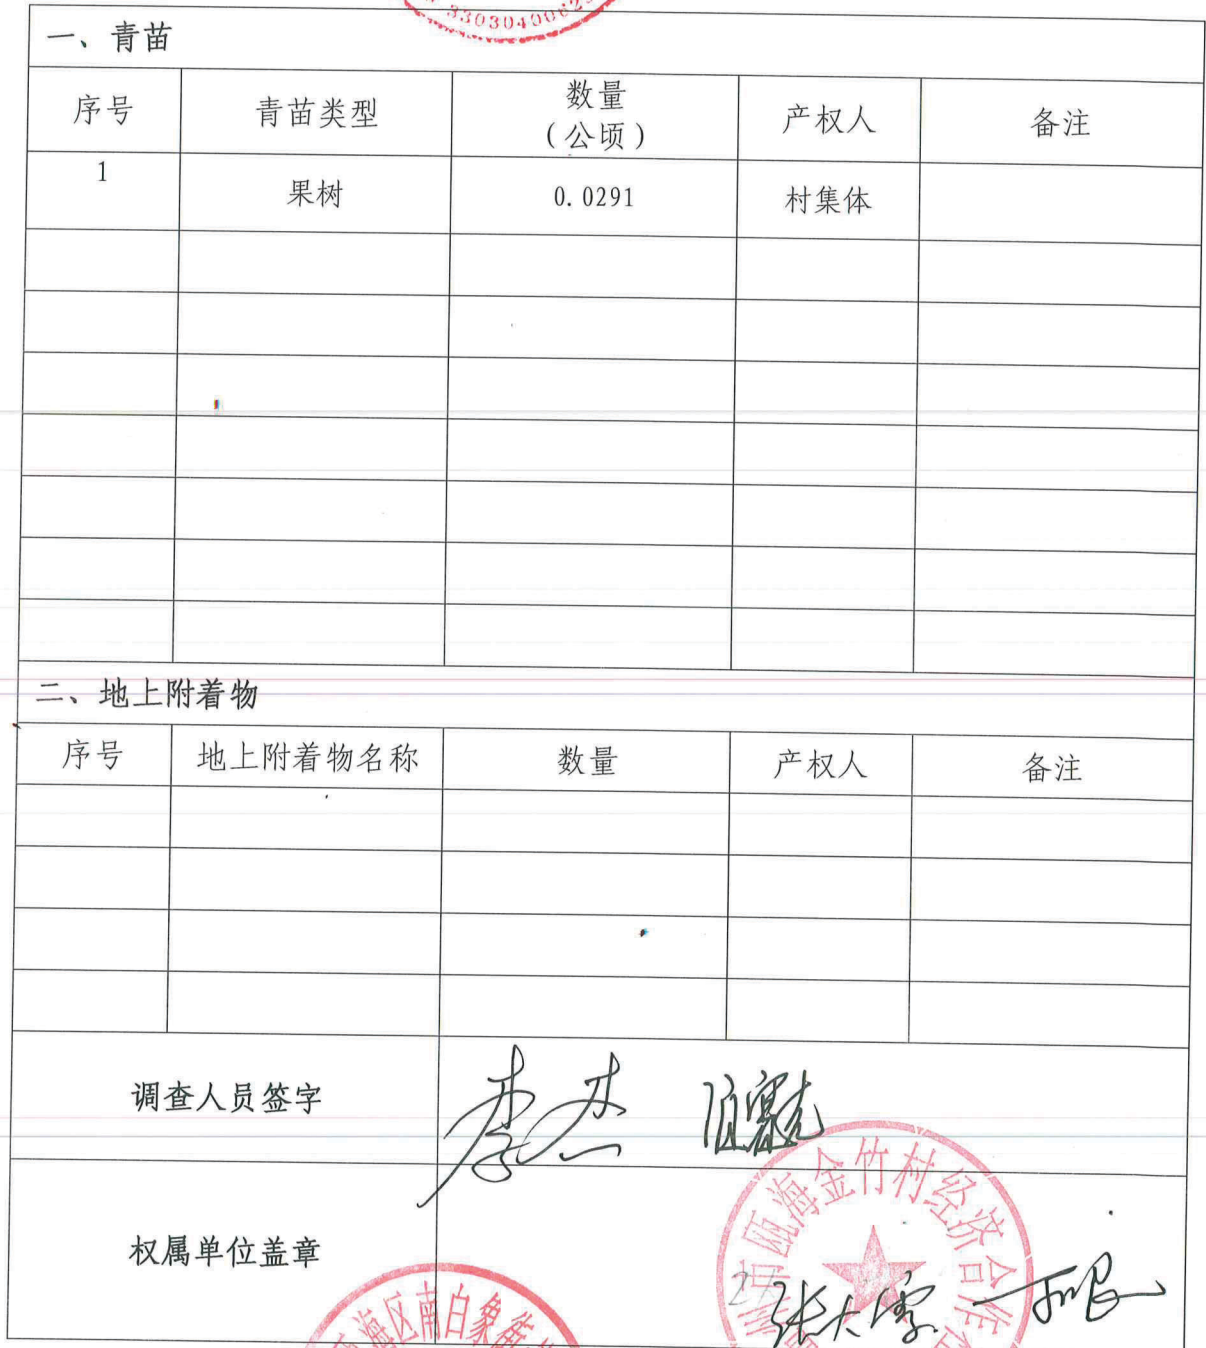 一、青苗
序号 青苗类型 数量（公顷） 产权人 备注
1 果树 0.0291 村集体
二、地上附着物
序号 地上附着物名称 数量 产权人 备注
调查人员签字 李杰
权属单位盖章
州市瓯海金竹村经济合作
海区南白象街